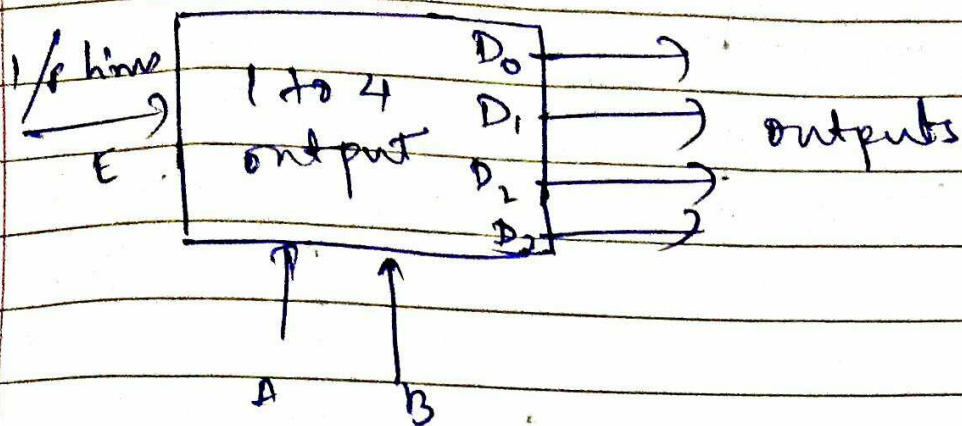 I/P line
E
1 to 4
output
D0
D1
D2
D3
outputs
A
B